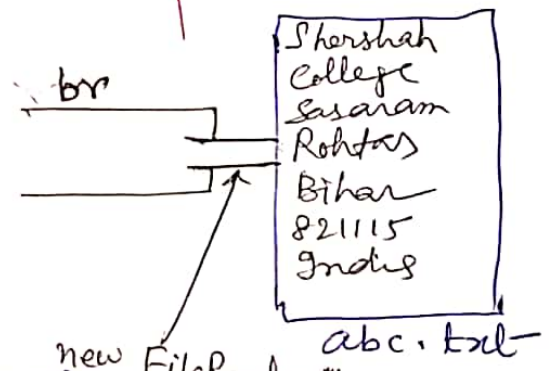 br
Shershah
College
Sasaram
Rohtas
Bihar
821115
India
abc.txt
new